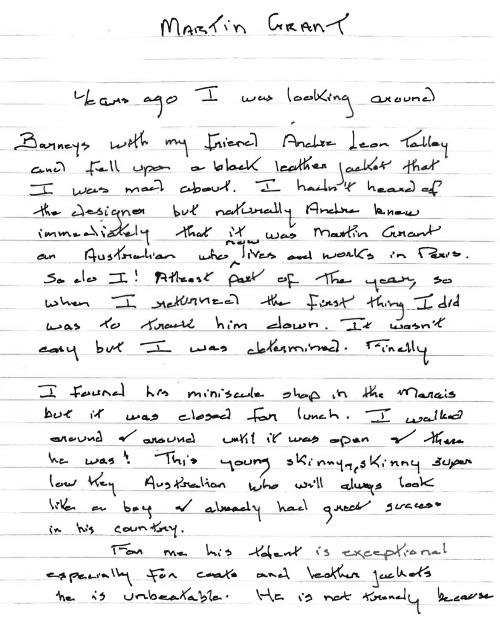 MARTIN GRANT
Years ago I was looking around
Barneys with my friend Andre Leon Talley
and fell upon a black leather jacket that
I was mad about. I hadn't heard of
the designer but naturally Andre knew
immediately that it was Martin Grant
an Australian who now lives and works in Paris.
So do I! Atleast part of the year, so
when I returned the first thing I did
was to track him down. It wasn't
easy but I was determined. Finally
I found his miniscule shop in the Marais
but it was closed for lunch. I walked
around & around until it was open & there
he was! This young skinny, skinny super
low key Australian who will always look
like a boy & already had great success
in his country.
For me his talent is exceptional
especially for coats and leather jackets
he is unbeatable. He is not trendy because